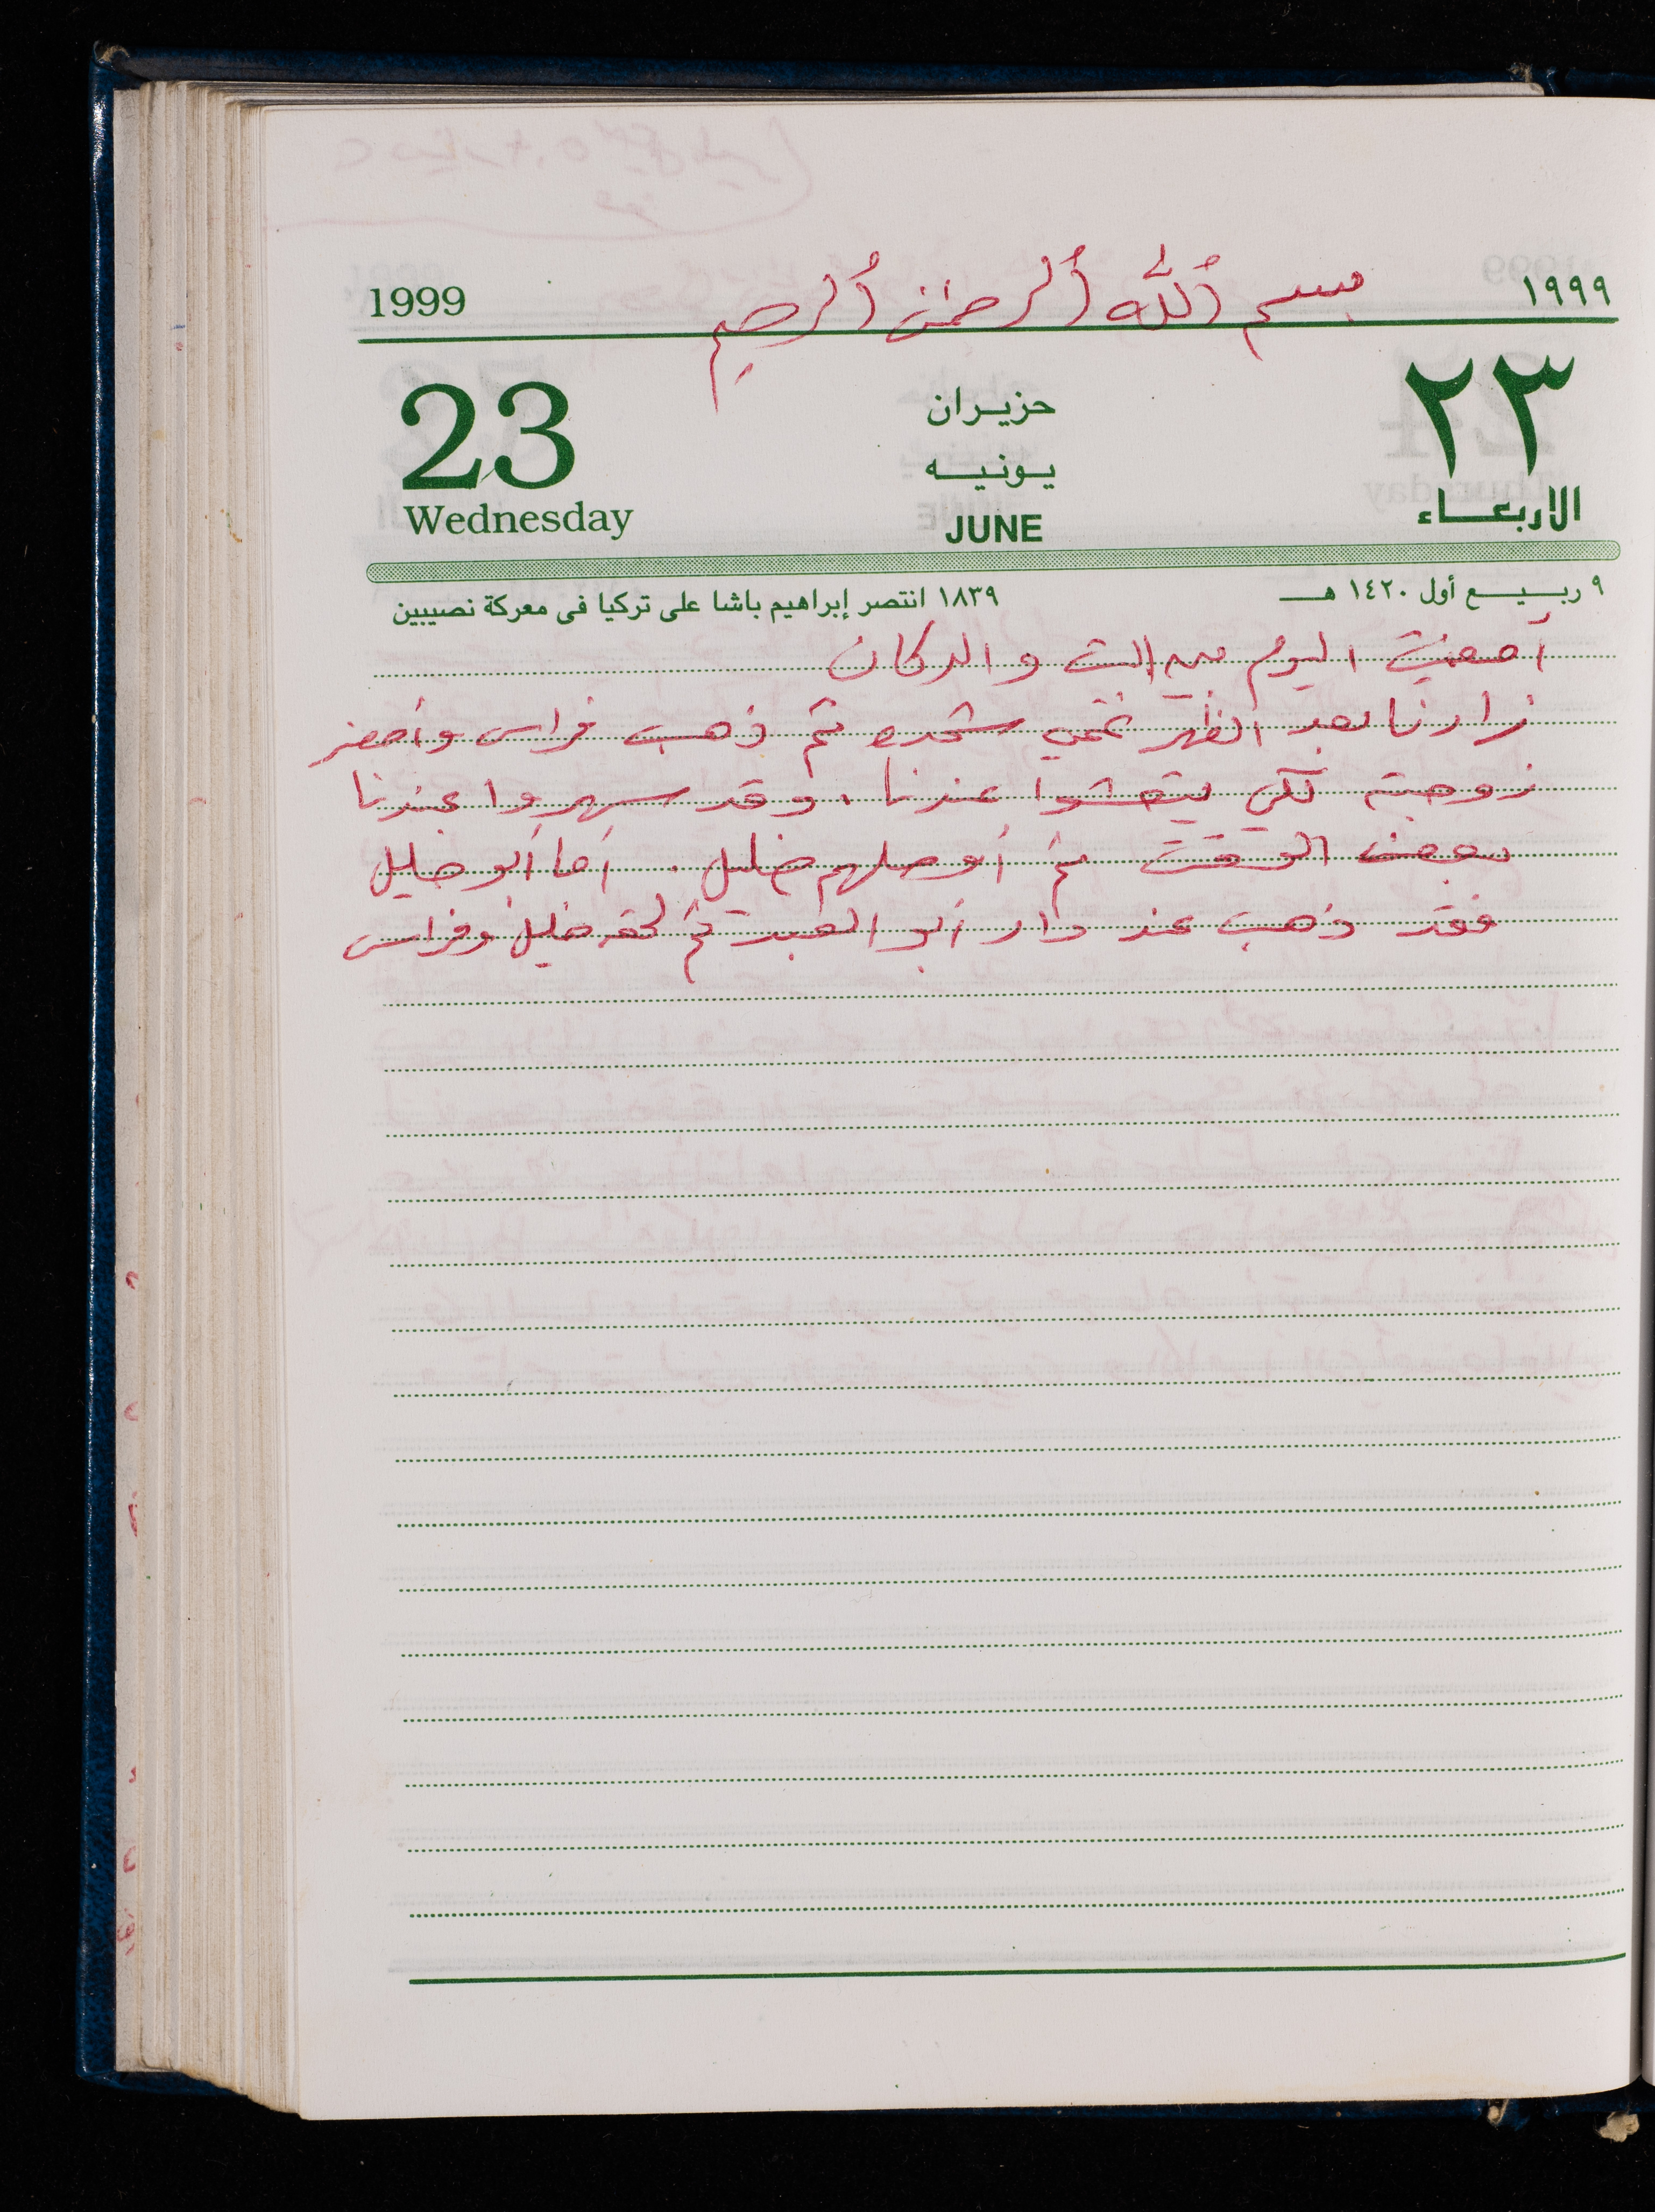 بسم الله الرحمن الرحيم
1999 ١٩٩٩
23 حزيران ٢٣
يونيه
Wednesday JUNE الاربعاء
٩ ربيع أول ١٤٢٠ هـ ١٨٣٩ انتصر إبراهيم باشا على تركيا فى معركة نصيبين
أمضيت اليوم بين البيت والدكان
زارنا بعد الظهر عمي شحده ثم ذهب فراس وأحضر
زوجته لكي يتعشوا عندنا، وقد سهروا عندنا
بعض الوقت ثم أوصلهم خليل. أما أبو خليل
فقد ذهب عند دار أبو العبد ثم لحقه خليل وفراس